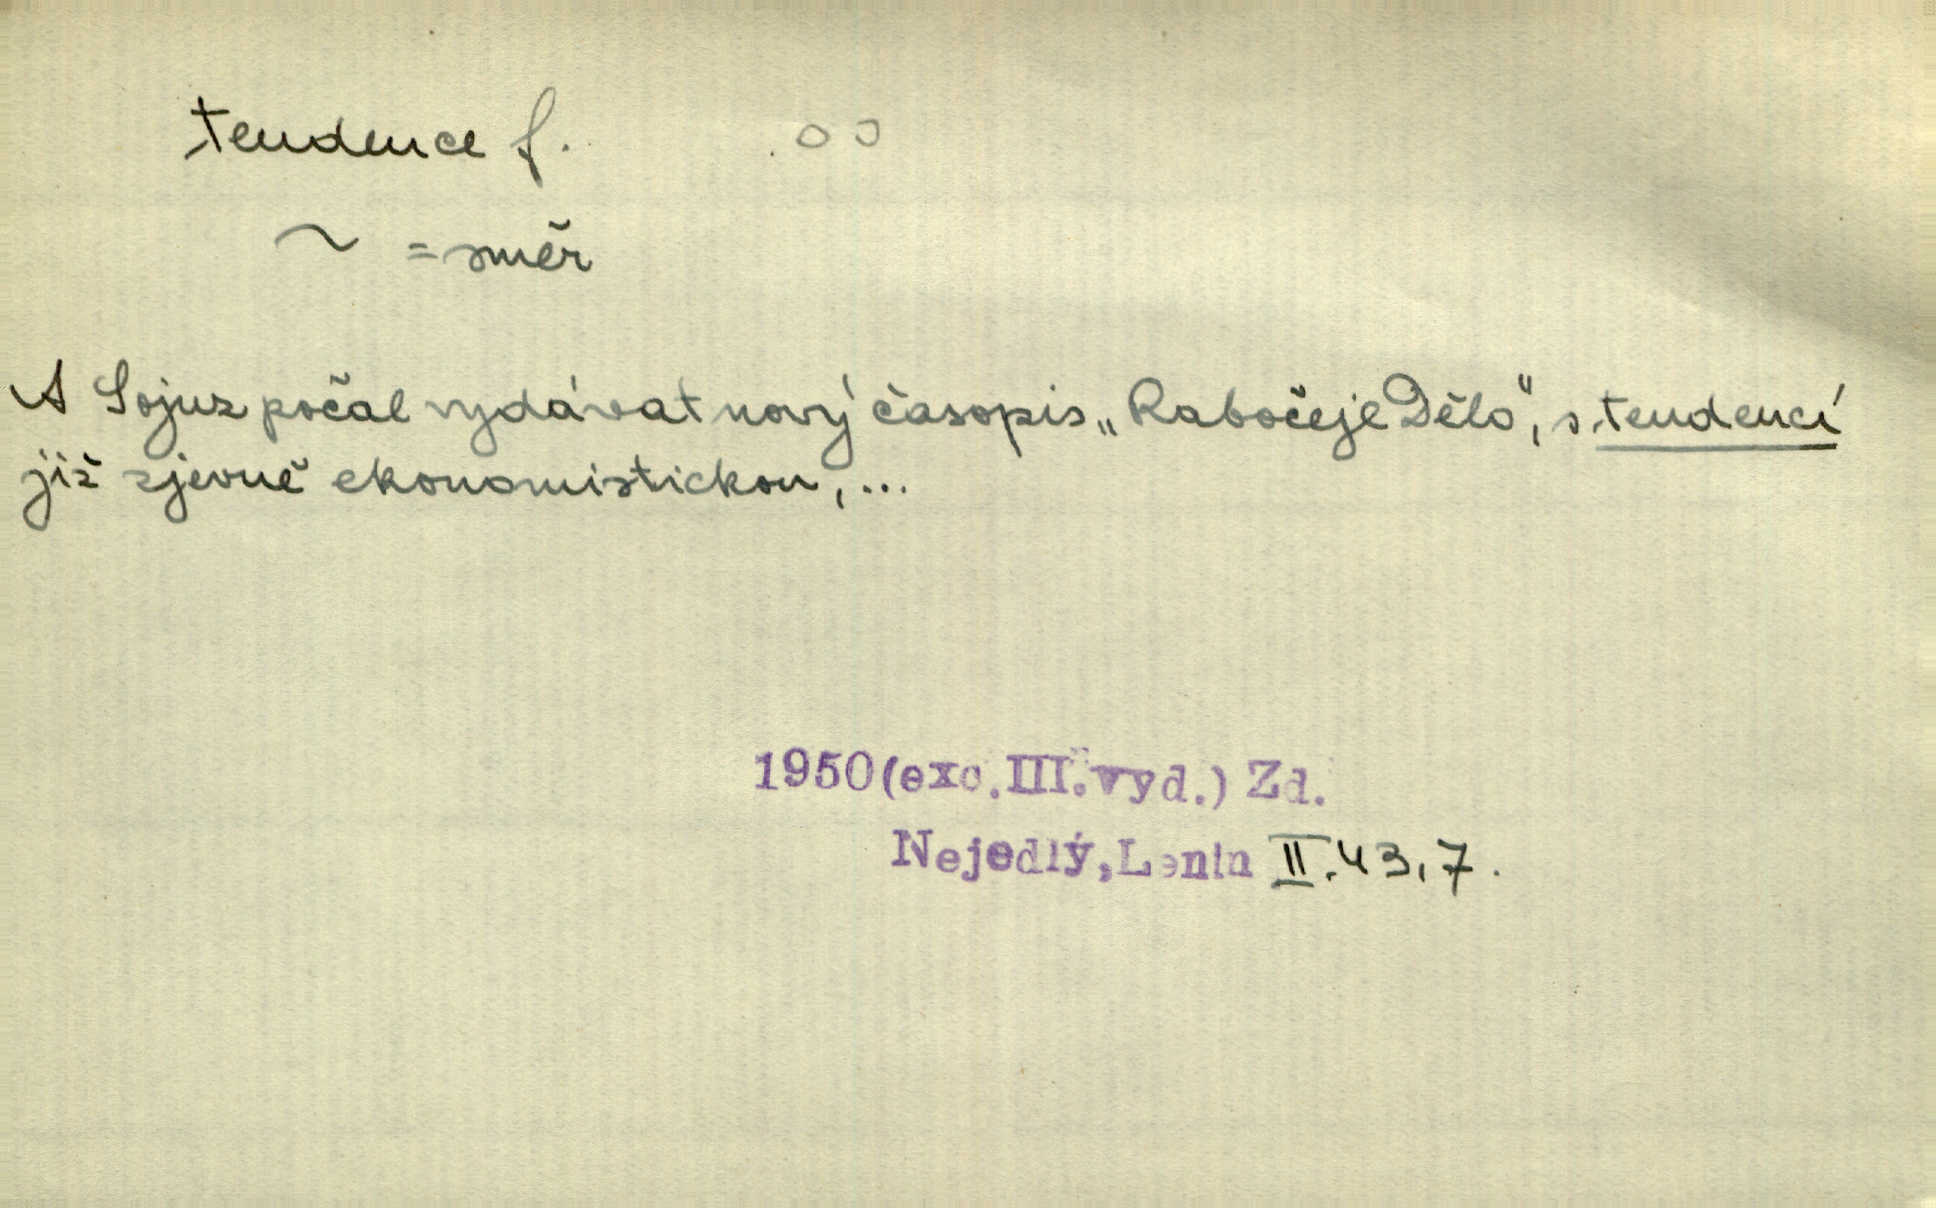 tendence f.
~ = směr
A Sojuz počal vydávat nový časopis „Rabočeje Dělo", s tendencí
již zjevně ekonomistickou, ...
1950(exc.III.vyd.) Zd.
Nejedlý,Lenin II.43,7.